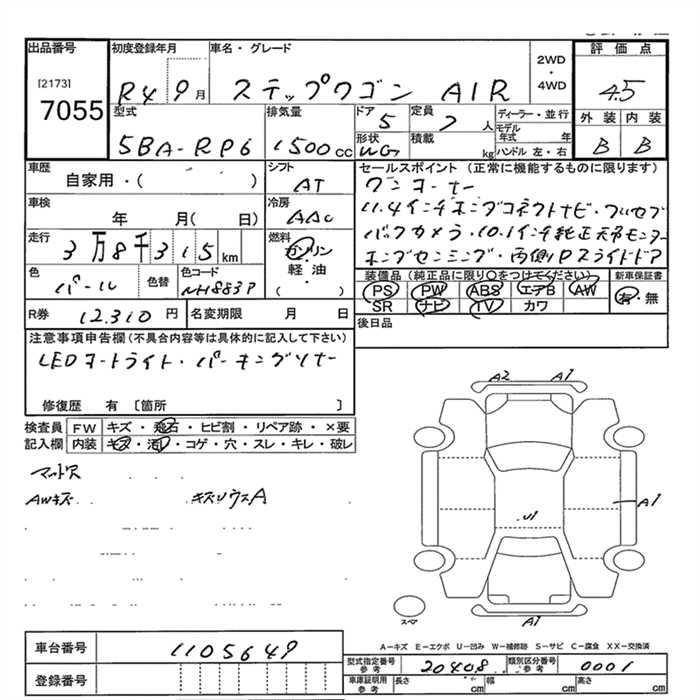 出品番号
[2173]
7055
初度登録年月
R4 9月
車名・グレード
ステップワゴン AIR
2WD
・
4WD
評価点
4.5
外装 内装
B B
型式
5BA-RP6
排気量
1500cc
ドア
5
定員
7人
形状
WG
積載
kg
ディーラー・並行
モデル年式 年
ハンドル 左・右
車歴
自家用・( )
シフト
AT
車検
年 月( 日)
冷房
AAC
走行
3万8千315km
燃料
ガソリン
・
軽油
( )
色
パール
色替
色コード
NH883P
R券
12,310円
名変期限 月 日
セールスポイント(正常に機能するものに限ります)
ワンオーナー
11.4インチホンダコネクトナビ・フルセグ
バックカメラ・10.1インチ純正天吊モニター
ホンダセンシング・両側Pスライドドア
装備品(純正品に限り○をつけてください)
新車保証書
PS PW ABS エアB AW
SR ナビ TV カワ
有・無
後日品
注意事項申告欄(不具合内容等は具体的に記入して下さい)
LEDオートライト・パーキングソナー
修復歴 有 〔箇所 〕
検査員 FW キズ・飛石・ヒビ割・リペア跡・×要
記入欄 内装 キズ・汚レ・コゲ・穴・スレ・キレ・破レ
マット欠
AWキズ キズリウスA
A2 A1
A1
U1
スペア
A1
A-キズ E-エクボ U-凹み W-補修跡 S-サビ C-腐食 XX-交換済
車台番号
1105649
登録番号
型式指定番号
参考
20408
類別区分番号
参考
0001
車庫証明用
参考
長さ cm
幅 cm
高さ cm